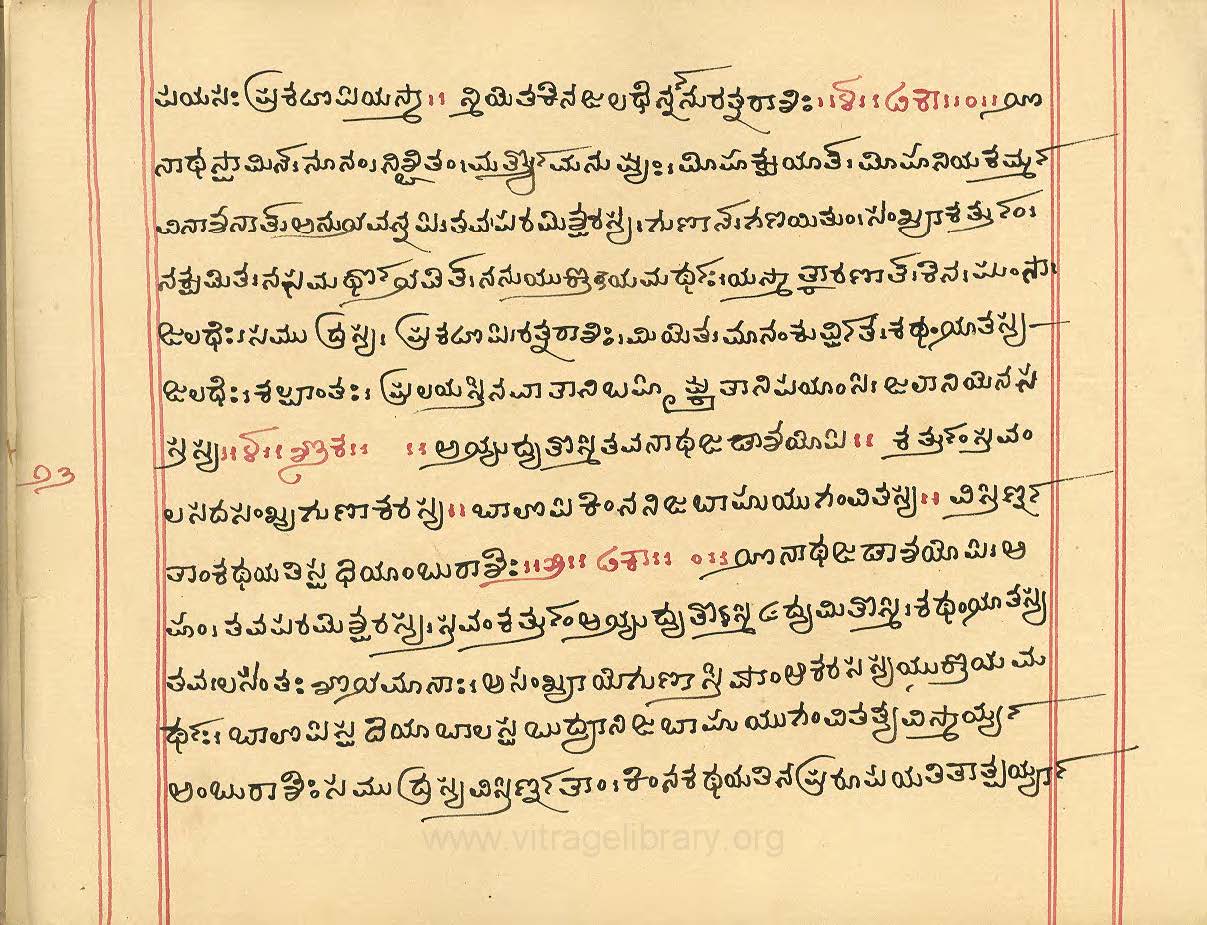 ಪಯಸಃ ಪ್ರಕಟೋಪಿಯಸ್ಮಾ।। ನ್ಮಿಯಿತಕೆನಜಲಧೆರ್ನ್ನನುರತ್ನರಾಶಿಃ ।।೪।। ಟೀಕಾ ।।೦।। ಯೇ
ನಾಥಸ್ವಾಮಿನ್। ನೂನಂ। ನಿಶ್ಚಿತಂ। ಮರ್ತ್ಯೋ ಮನುಷ್ಯಃ। ಮೋಹಕ್ಷಯಾತ್। ಮೋಹನಿಯಕರ್ಮ್ಮ
ವಿನಾಶೆನಾತ್ ಅನುಭವನ್ನಪಿ। ತವಪರಮೆಶ್ವರಸ್ಯ। ಗುಣಾನ್। ಗಣಯಿತುಂ। ಸಂಖ್ಯಾಕರ್ತ್ತುಂ।
ನಕ್ಷಮೆತ। ನಸಮರ್ಥೋಭವೆತ್। ನನುಯುಕ್ತೋಯಮರ್ಥಃ। ಯಸ್ಮಾತ್ಕಾರಣಾತ್। ಕೆನ। ಪುಂಸಾ।
ಜಲಧೆಃ। ಸಮುದ್ರಸ್ಯ। ಪ್ರಕಟೋಪಿ। ರತ್ನರಾಶಿಃ। ಮಿಯೆತ। ಮಾನಂಕುರ್ವ್ವಿತ। ಕಥಂಭೂತಸ್ಯ
ಜಲಧೆಃ। ಕಲ್ಪಾಂತಃ। ಪ್ರಲಯಸ್ತೆನವಾತಾನಿಬಹಿಷ್ಕೃತಾನಿಪಯಾಂಸಿ। ಜಲಾನಿಯೆನಸ
ಸ್ತಸ್ಯ ।।೪।। ಶ್ಲೋಕ।। ।। ಅಭ್ಯುದ್ಯತೋಸ್ಮಿತವನಾಥಜಡಾಶಯೋಪಿ।। ಕರ್ತ್ತುಂಸ್ತವಂ
ಲಸದಸಂಖ್ಯಗುಣಾಕರಸ್ಯ।। ಬಾಲೋಪಿಕಿಂನನಿಜಬಾಹುಯುಗಂವಿತಸ್ಯ।। ವಿಸ್ತಿರ್ಣ್ಣ
ತಾಂಕಥಯತಿಸ್ವಧಿಯಾಂಬುರಾಶೆಃ ।।೫।। ಟೀಕಾ ।। ೦।। ಯೇನಾಥಜಡಾಶಯೋಪಿ। ಅ
ಹಂ। ತವಪರಮೆಶ್ವರಸ್ಯ। ಸ್ತವಂಕರ್ತ್ತುಂಅಭ್ಯುದ್ಯತೋಸ್ಮಿ ಉದ್ಯಮಿತೋಸ್ಮಿ। ಕಥಂಭೂತಸ್ಯ
ತವ। ಲಸಂತಃ ಶೋಭಮಾನಾಃ। ಅಸಂಖ್ಯಾಯೆಗುಣಾಸ್ತೆಷಾಂಆಕರಸಸ್ಯಯುಕ್ತೋಯಮ
ರ್ಥಃ। ಬಾಲೋಪಿಸ್ವಧಿಯಾಬಾಲಸ್ವಬುದ್ಯಾನಿಜಬಾಹುಯುಗಂವಿತತ್ಯವಿಸ್ತಾರ್ಯ್ಯ
ಅಂಬುರಾಶೆಃಸಮುದ್ರಸ್ಯವಿಸ್ತಿರ್ಣ್ಣತಾಂ। ಕಿಂನಕಥಯತಿನಪ್ರರೂಪಯತಿತಾತ್ಪರ್ಯ್ಯಾ
೧೩
www.vitragelibrary.org